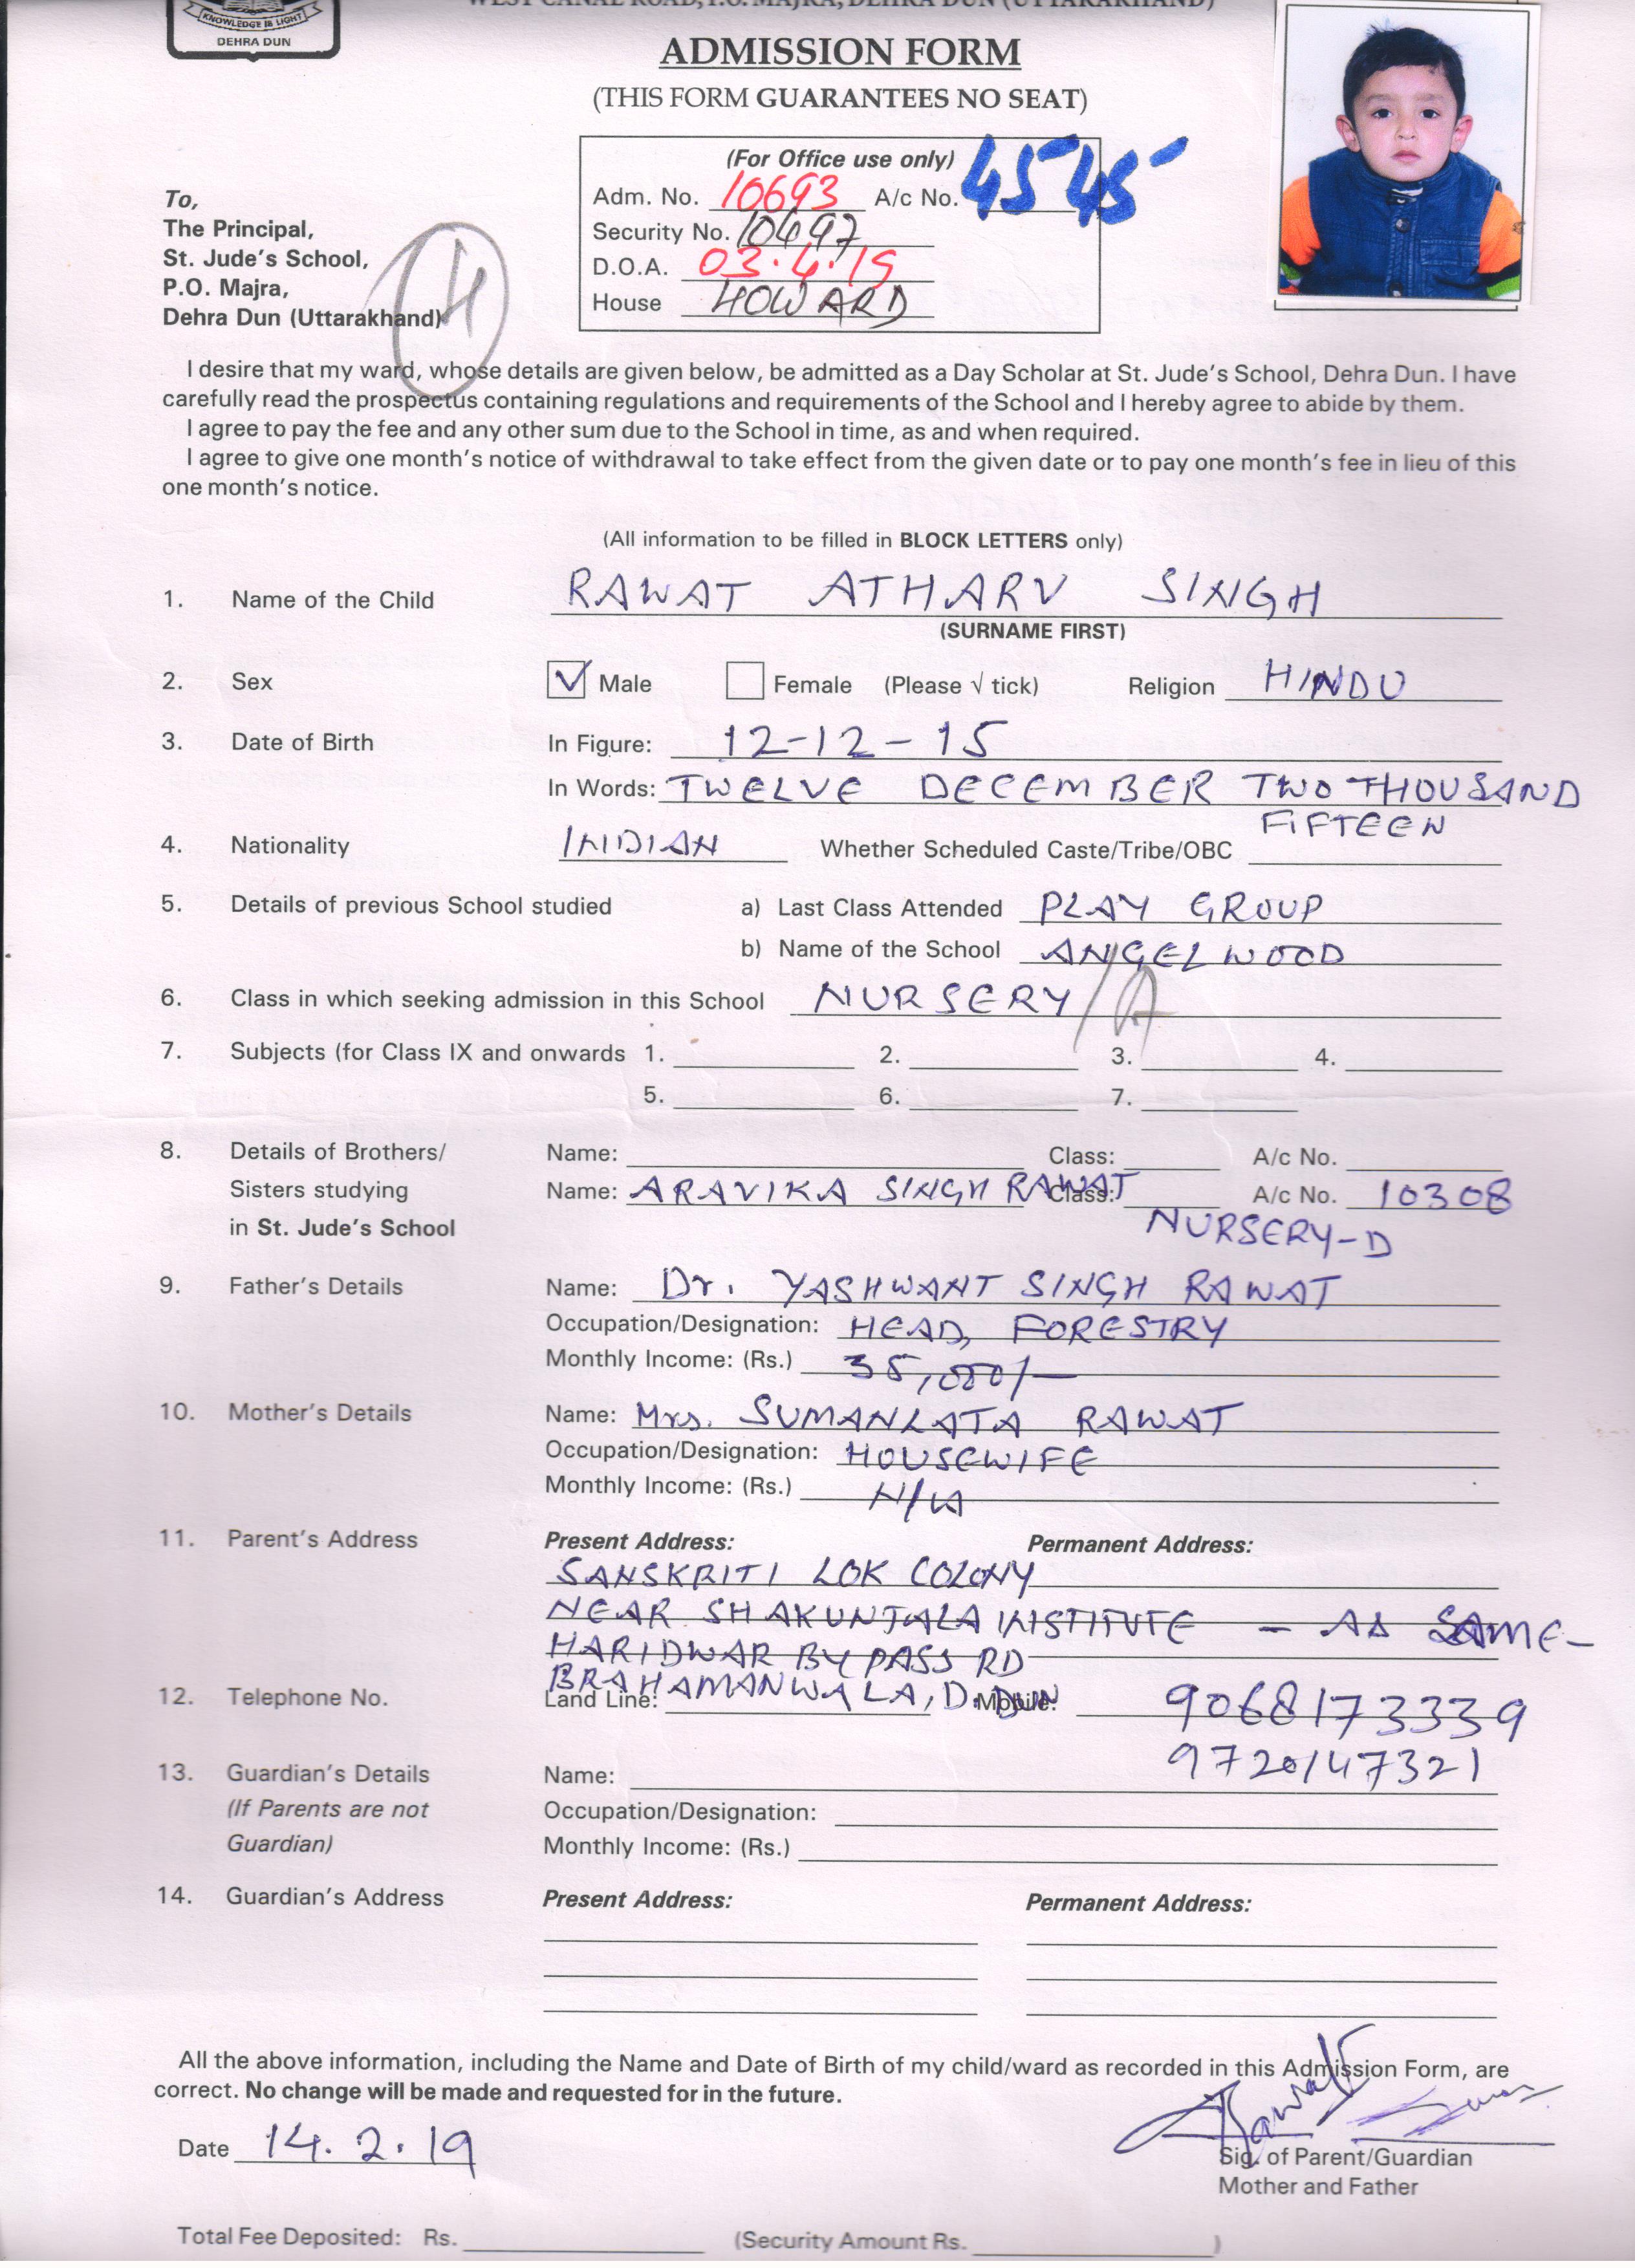 KNOWLEDGE IS LIGHT
DEHRA DUN
WEST CANAL ROAD, P.O. MAJRA, DEHRA DUN (UTTARAKHAND)
ADMISSION FORM
(THIS FORM GUARANTEES NO SEAT)
(For Office use only)
Adm. No. 10693 A/c No. 4545
Security No. 10497
D.O.A. 03.4.19
House HOWARD
To,
The Principal,
St. Jude's School,
P.O. Majra,
Dehra Dun (Uttarakhand)
I desire that my ward, whose details are given below, be admitted as a Day Scholar at St. Jude's School, Dehra Dun. I have
carefully read the prospectus containing regulations and requirements of the School and I hereby agree to abide by them.
I agree to pay the fee and any other sum due to the School in time, as and when required.
I agree to give one month's notice of withdrawal to take effect from the given date or to pay one month's fee in lieu of this
one month's notice.
(All information to be filled in BLOCK LETTERS only)
1. Name of the Child RAWAT ATHARV SINGH
(SURNAME FIRST)
2. Sex Male Female (Please √ tick) Religion HINDU
3. Date of Birth In Figure: 12-12-15
In Words: TWELVE DECEMBER TWO THOUSAND
FIFTEEN
4. Nationality INDIAN Whether Scheduled Caste/Tribe/OBC
5. Details of previous School studied a) Last Class Attended PLAY GROUP
b) Name of the School ANGELWOOD
6. Class in which seeking admission in this School NURSERY/A
7. Subjects (for Class IX and onwards 1. 2. 3. 4.
5. 6. 7.
8. Details of Brothers/ Name: Class: A/c No.
Sisters studying Name: ARAVIKA SINGH RAWAT Class: A/c No. 10308
in St. Jude's School NURSERY-D
9. Father's Details Name: Dr. YASHWANT SINGH RAWAT
Occupation/Designation: HEAD, FORESTRY
Monthly Income: (Rs.) 35,000/-
10. Mother's Details Name: Mrs. SUMANLATA RAWAT
Occupation/Designation: HOUSEWIFE
Monthly Income: (Rs.) N/A
11. Parent's Address Present Address: Permanent Address:
SANSKRITI LOK COLONY
NEAR SHAKUNTALA INSTITUTE - AS SAME-
HARIDWAR BY PASS RD
BRAHAMANWALA, D.DUN
12. Telephone No. Land Line: Mobile: 9068173339
9720147321
13. Guardian's Details Name:
(If Parents are not Occupation/Designation:
Guardian) Monthly Income: (Rs.)
14. Guardian's Address Present Address: Permanent Address:
All the above information, including the Name and Date of Birth of my child/ward as recorded in this Admission Form, are
correct. No change will be made and requested for in the future.
Date 14.2.19
Sig. of Parent/Guardian
Mother and Father
Total Fee Deposited: Rs. (Security Amount Rs. )